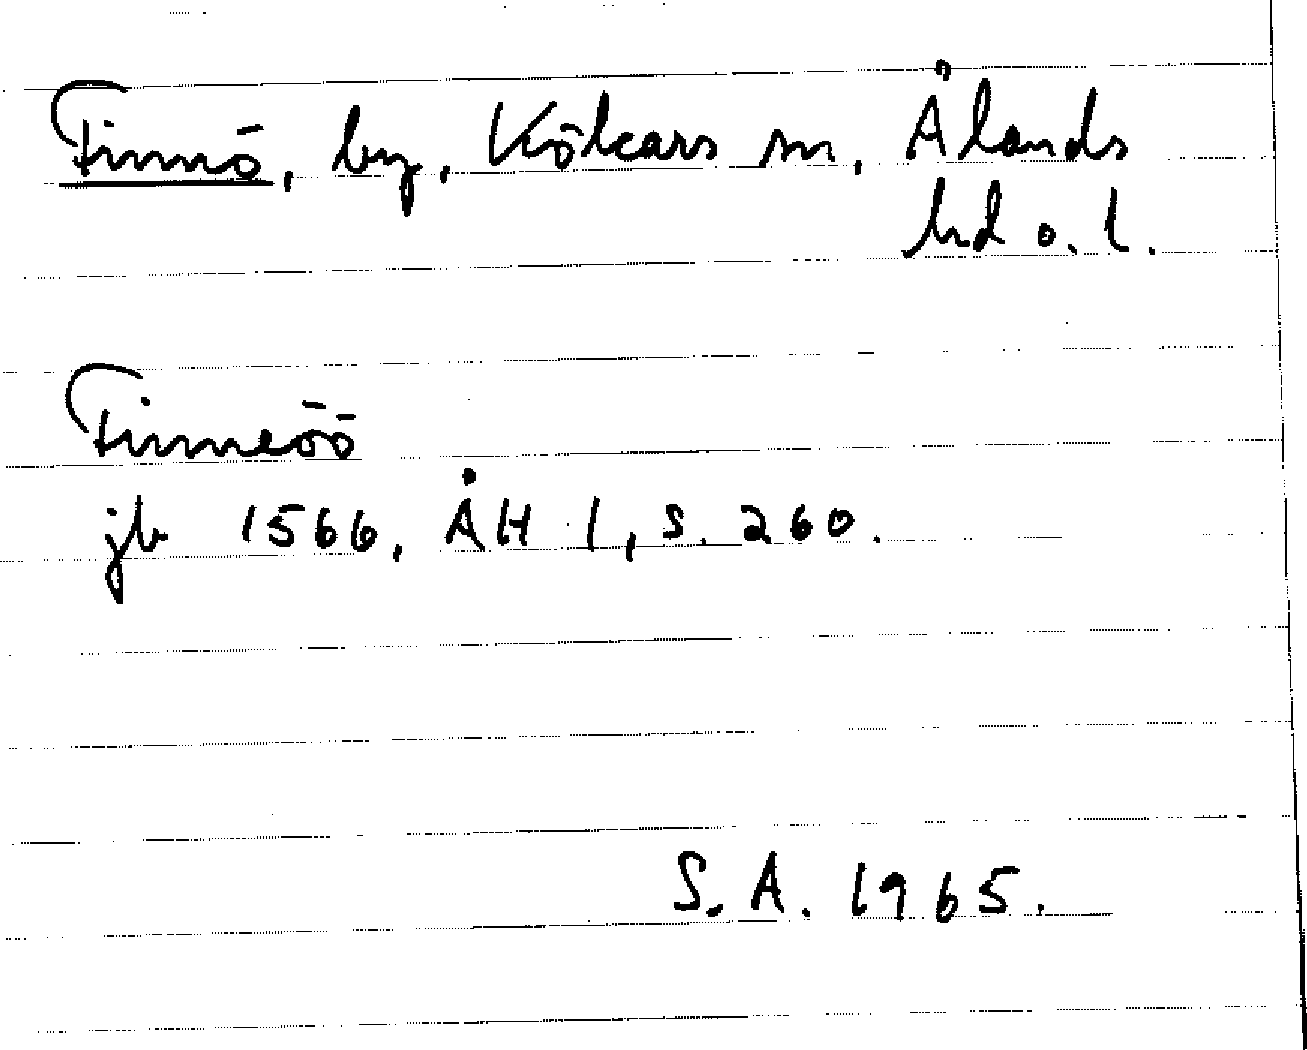 Finnö, by, Kökars sn, Ålands
hd o. l.
Finneöö
jb 1566, ÅH 1, s. 260.
S. A. 1965.